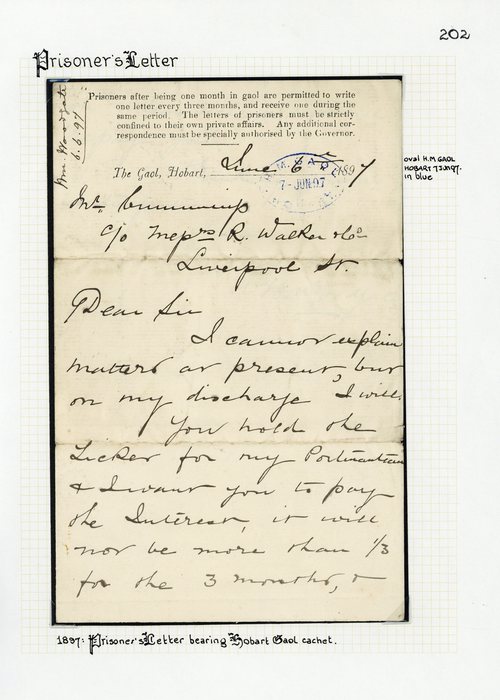 202
Prisoner's Letter
Wm Woodgate
6.6.97
Prisoners after being one month in gaol are permitted to write
one letter every three months, and receive one during the
same period. The letters of prisoners must be strictly
confined to their own private affairs. Any additional cor-
respondence must be specially authorised by the Governor.
The Gaol, Hobart, June 6th 1897
H.M. GAOL
7-JUN 97
oval H.M. GAOL
HOBART 7JUN97.
in blue
Mr. Cummings
c/o Messrs R. Walker & Co
Liverpool St.
Dear Sir
I cannot explain
matters at present but
on my discharge I will.
You hold the
Ticket for my Portmanteau
& I want you to pay
the Interest, it will
not be more than 1/3
for the 3 months, &
1897: Prisoner's Letter bearing Hobart Gaol cachet.